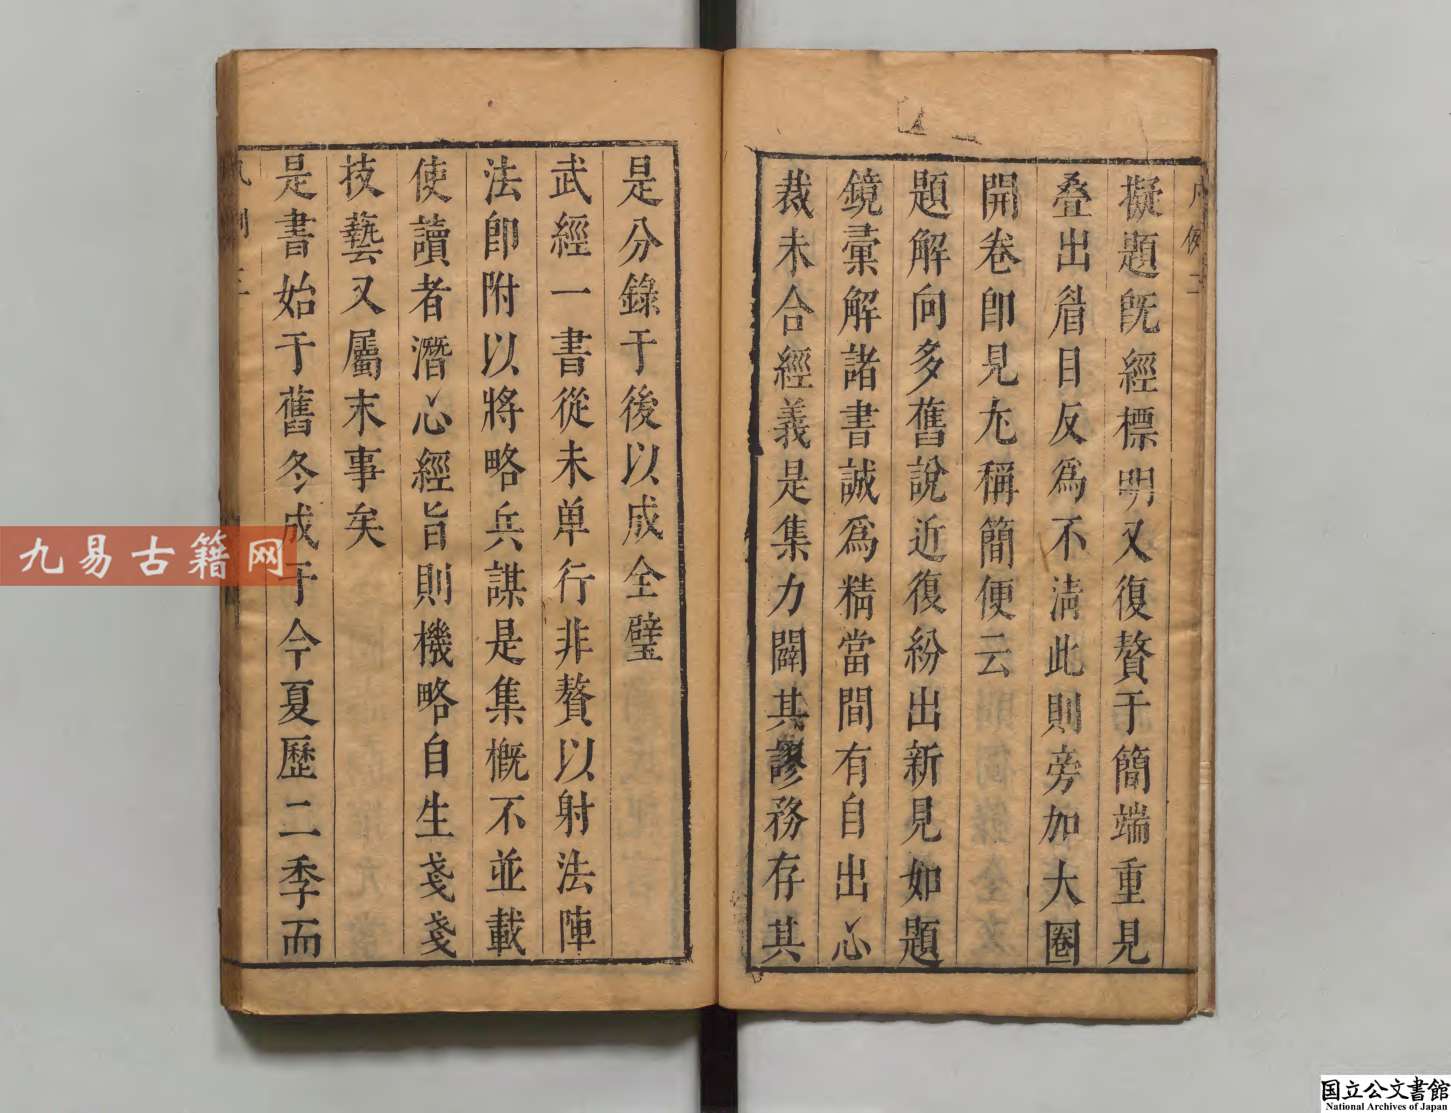 擬題旣經標明又復贅于簡端重見
叠出眉目反爲不淸此則旁加大圈
開卷卽見尤稱簡便云
題解向多舊說近復紛出新見如題
鏡彙解諸書誠爲精當間有自出心
裁未合經義是集力闢其謬務存其
是分錄于後以成全璧
武經一書從未单行非贅以射法陣
法卽附以將略兵謀是集槪不並載
使讀者潛心經旨則機略自生戔戔
技藝又屬末事矣
是書始于舊冬成于今夏歷二季而
九易古籍网
国立公文書館
National Archives of Japan